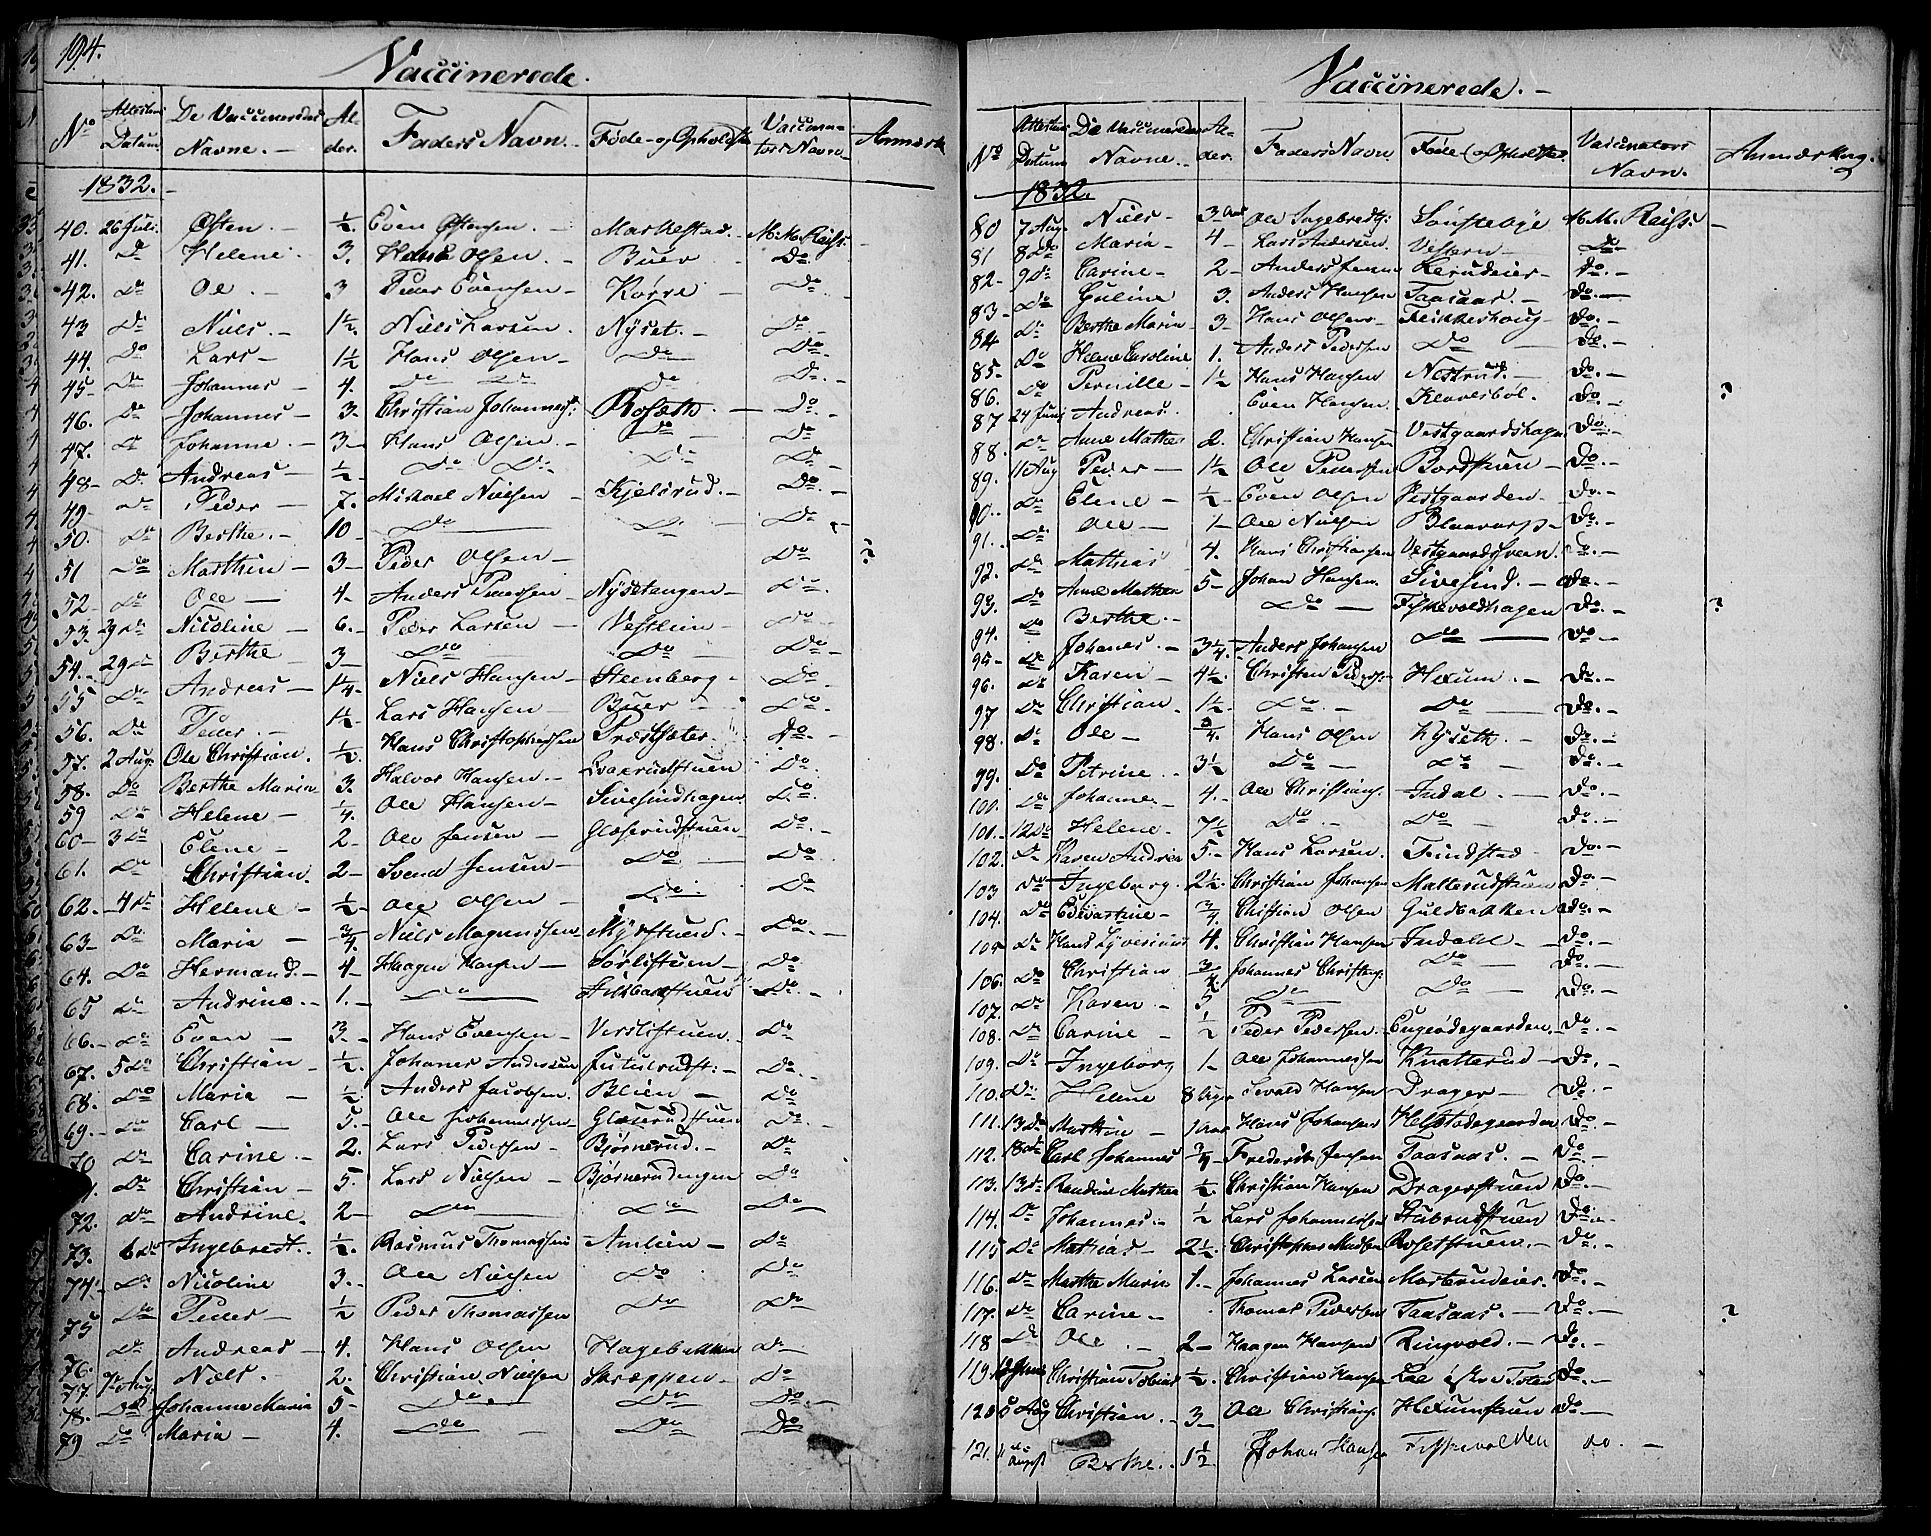 194.
Vaccinerede.
No Attesters Datum De Vaccineredes Navne. Alder. Faders Navn. Føde- og Opholdste Vaccinators Navn Anmærk
1832.
40. 26 Juli Often. ½. Even Oftensen. Markestad. M. M. Reiss.
41. Do Helene. 3. Hans Olsen. Buer Do.
42. Do Ole 3 Peder Evensen Kørre Do
43 Do Niels. 1½. Niels Larsen. Nyset. Do
44. Do Lars 1½ Hans Olsen Do Do
45 Do Johannes 4. Do Do Do Do.
46. Do Johannes 3. Christian Johanness: Rosæth. Do
47. Do Johanne. 3 Hans Olsen. Do Do
48 Do Andreas ½ Do Do Do Do
49 Do Peder 7. Michael Nielsen Kjelsrud. Do.
50. Do Berthe. 10 Do Do Do
51 Do Marthin 3 Peder Olsen Do ?
52 Do Ole 4 Anders Nysetengen Do
53. 29 Do Nicoline 6. Peder Larsen Vestlien Do
54. 29 Do Berthe 3 Do Do Do
55 Do Andreas 1¼ Niels Hansen Steenberg Do
56. Do Peder. 1½ Lars Hansen Buer Do
57. 2 Aug. Ole Christian. ½ Hans Christophersen Præstsæter Do.
58. Do Berthe Maria 3. Halvor Hansen Do
59 Do Helene ¼. Ole Hansen Sivesindhagen Do
60 3 Do Elene 2 Ole Jensen Glæserudstuen Do.
61. Do Christian. 2 Svend Jensen Do Do
62. 4 Do Helene ½ Ole Olsen Do Do
63 Do Maria ¾ Niels Magnussen Myrstuend. Do
64. Do Hermand. 4 Haagen Hansen Sørlistuen Do
65 Do Andrine. 1. Do Do
66 Do Even 3 Hans Evensen Verslistuen. Do
67. 5 Do Christian ½. Johanes Andersen Do.
68. Do Maria ½ Anders Jacobsen. Blien Do
69. Do Carl 5. Ole Johannessen Glæserudstuen Do
70 Do Carine. 2. Lars Pedersen Bjørnerud. Do
Do Christian 5. Lars Nielsen Bjørnerudengen Do
72. Do Andrine. 2 Do Do Do
73. 6 Do Ingebredt. ½. Rasmus Thomassen Amlien Do
74 Do Nicoline 3. Ole Nielsen Do Do
75 Do Peder ½ Peder Thomassen Do Do
76. Do Andreas 4. Hans Olsen Hagebakken Do
77. 7 Aug. Niels. 2. Christian Nielsen Skræppen Do
78. Do Johanne Maria 5 Do Do Do
79 Do Maria 4. Do Do Do
Vaccinerede.
No Attesters Datum De Vaccineredes Navne. Alder. Faders Navn Føde og Opholdste. Vaccinators Navn. Anmærkning.
1832.
80 7 Aug. Niels 3 Aar Ole Ingebredts: M. M. Reiss.
81 8 Do Maria 4 Lars Andersen. Vestern Do
82 9 Do Carine 2 Anders Lerudeier Do.
83 Do Guline 3. Anders Hansen Taasaas. Do.
84 Do Berthe Maria 3 Hans Olsen Feikkeshoug Do.
85. Do Helene Caroline 1. Anders Pedersen Do Do.
86. Do Pernille 1½ Hans Hansen Nestrud. Do.
87 24 Juni Andreas. Even Hansen. Klovesbøl. Do. ?
88. Do Anne Mathea 2. Christian Hansen Vestgaardshagen Do.
89. 11 Aug Peder 1½ Ole Pedersen Bordstuen Do.
90. Do Elene ½ Even Olsen Vestgaarden Do.
91. Do Ole 1 Ole Nielsen Blaavarp Do.
92. Do Mathias 4. Hans Christiansen Vestgaardsveen. Do.
93. Do Anne Mathea 5 Johan Hansen. Sivesind. Do.
94. Do Berthe. Do Fiskevoldhagen Do. ?
95 Do Johanes. 3¼ Anders Johansen Do Do.
96. Do Karen 4½ Christen Peders Hexum. Do.
97 Do Christian 1½ Do Do Do.
98. Do Ole ¾. Hans Olsen Kyseth. Do.
99. Do Petrine. 3½ Do Do Do.
100. Do Johanne. 4. Ole Christians. Indal. Do.
101. 12 Do Helene. 7½ Do Do Do.
102. Do Karen Andrea 5 Hans Larsen. Findstad Do.
103 Do Ingeborg. 2½ Christian Johansen Malterudstuen Do.
104. Do Edvardine ¾. Christian Olsen Guldbakken Do.
105 Do Hans Syverinus 4. Christian Hansen Indahl Do.
106. Do Christian ¾ Johannes Christians: Do Do.
107. Do Karen 5 Do Do Do.
108. Do Carine ½ Peder Pedersen. Engeødegaarden Do.
109. Do Ingeborg 1 Ole Johannessen Knatterud Do.
110. Do Helene 8 Uger Sivald Hansen Drager Do.
111. 13 Do Marthin 1 Aar Hans Johansen Helstadegaarden Do.
112. 18 Do Carl Johannes ¾ Frederik Jensen Taasaas. Do.
113. 13 Do Randine Mathea ½. Christian Hansen Dragerstuen Do.
114. Do Johannes. ½ Lars Johannessen Stubrudstuen Do.
115 Do Mathias 2½ Christopher Madsen Rosetstuen. Do.
116. Do Marthe Maria 1. Johannes Larsen Marterudeier. Do.
117. Do Carine Thomas Pedersen Taasaas. Do. ?
118 Do Ole 2 Haagen Hansen Ringvold. Do.
119. Christian Tobias ½. Christian Hansen Do.
120 5 Aug Christian. 3 Ole Christians. Hexumstuen Do.
121. 4 August Berthe. 1½ Johan Hansen Fiskevolden do.